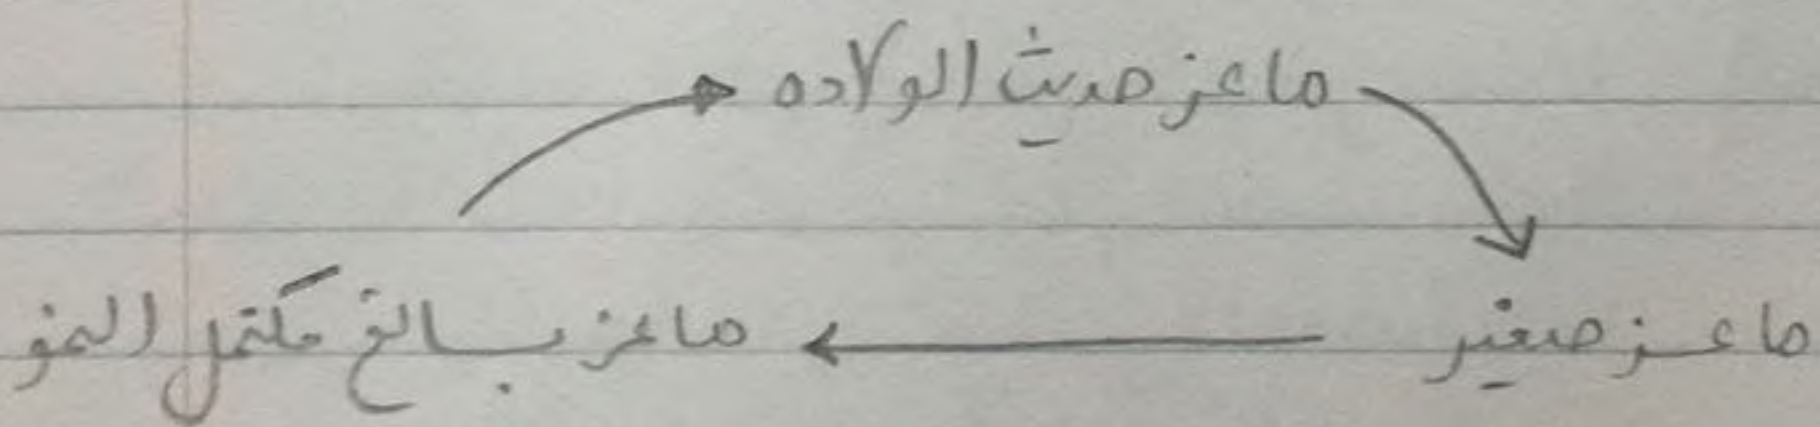 ماعز حديث الولاده
ماعز صغير
ماعز بالغ مكتمل النمو